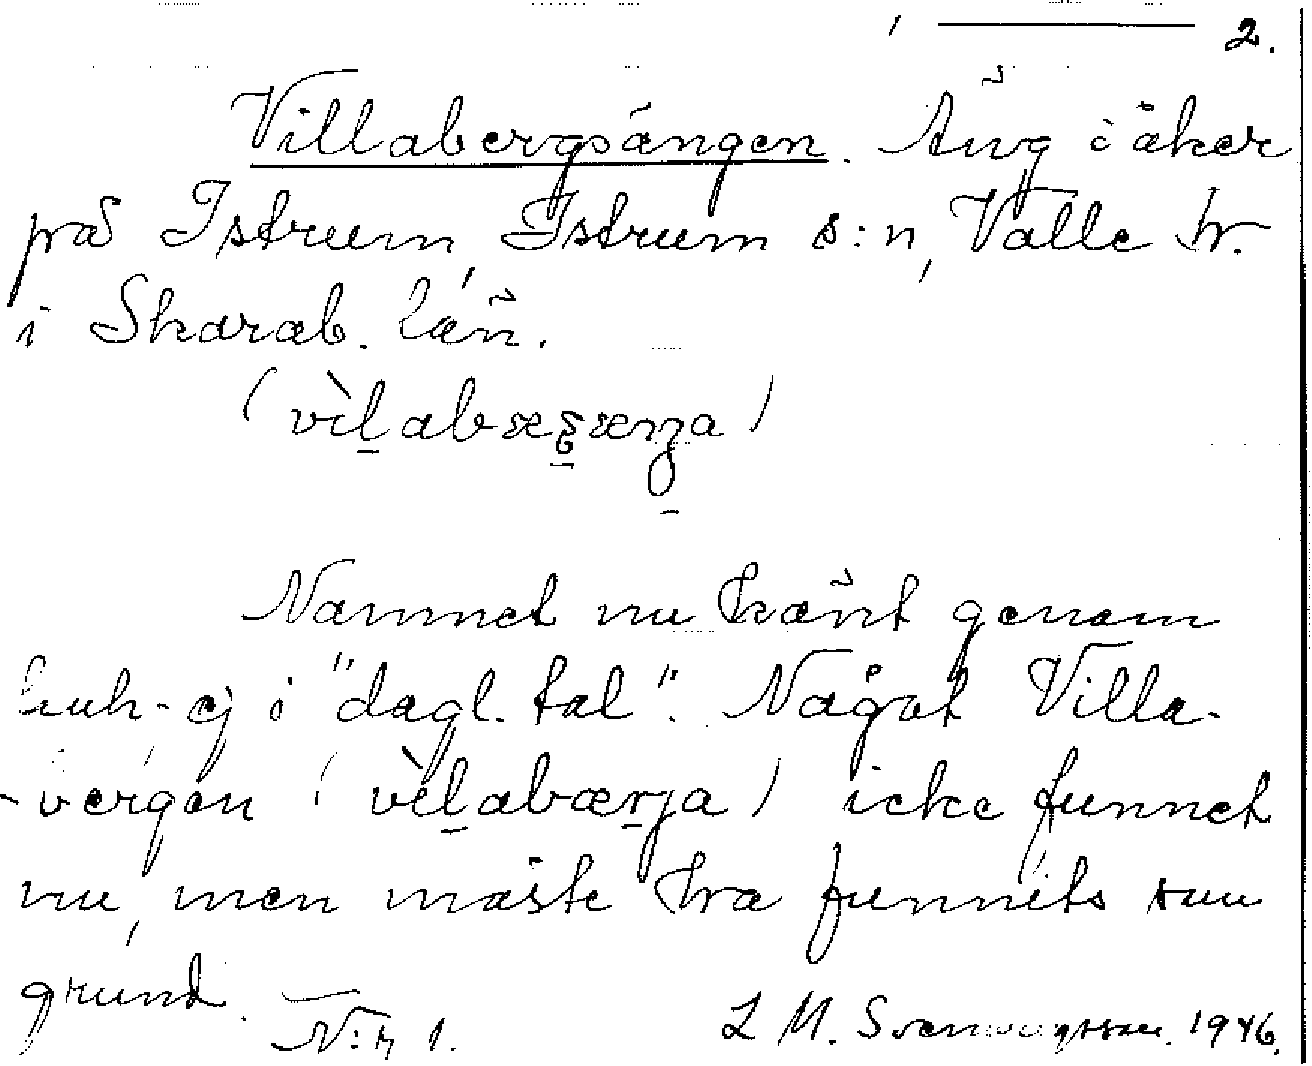 2.
Villabergsängen. Äng i åker
på Istrum, Istrum s:n, Valle hr.
i Skarab. län.
(vìḷabræ
Namnet nu känt genom
ej i "dagl. tal". Något Villa-
-bergen (vìḷabærja) icke funnet
nu, men måste ha funnits som
grund.
N:r 1. L M. Svenungsson. 1946.